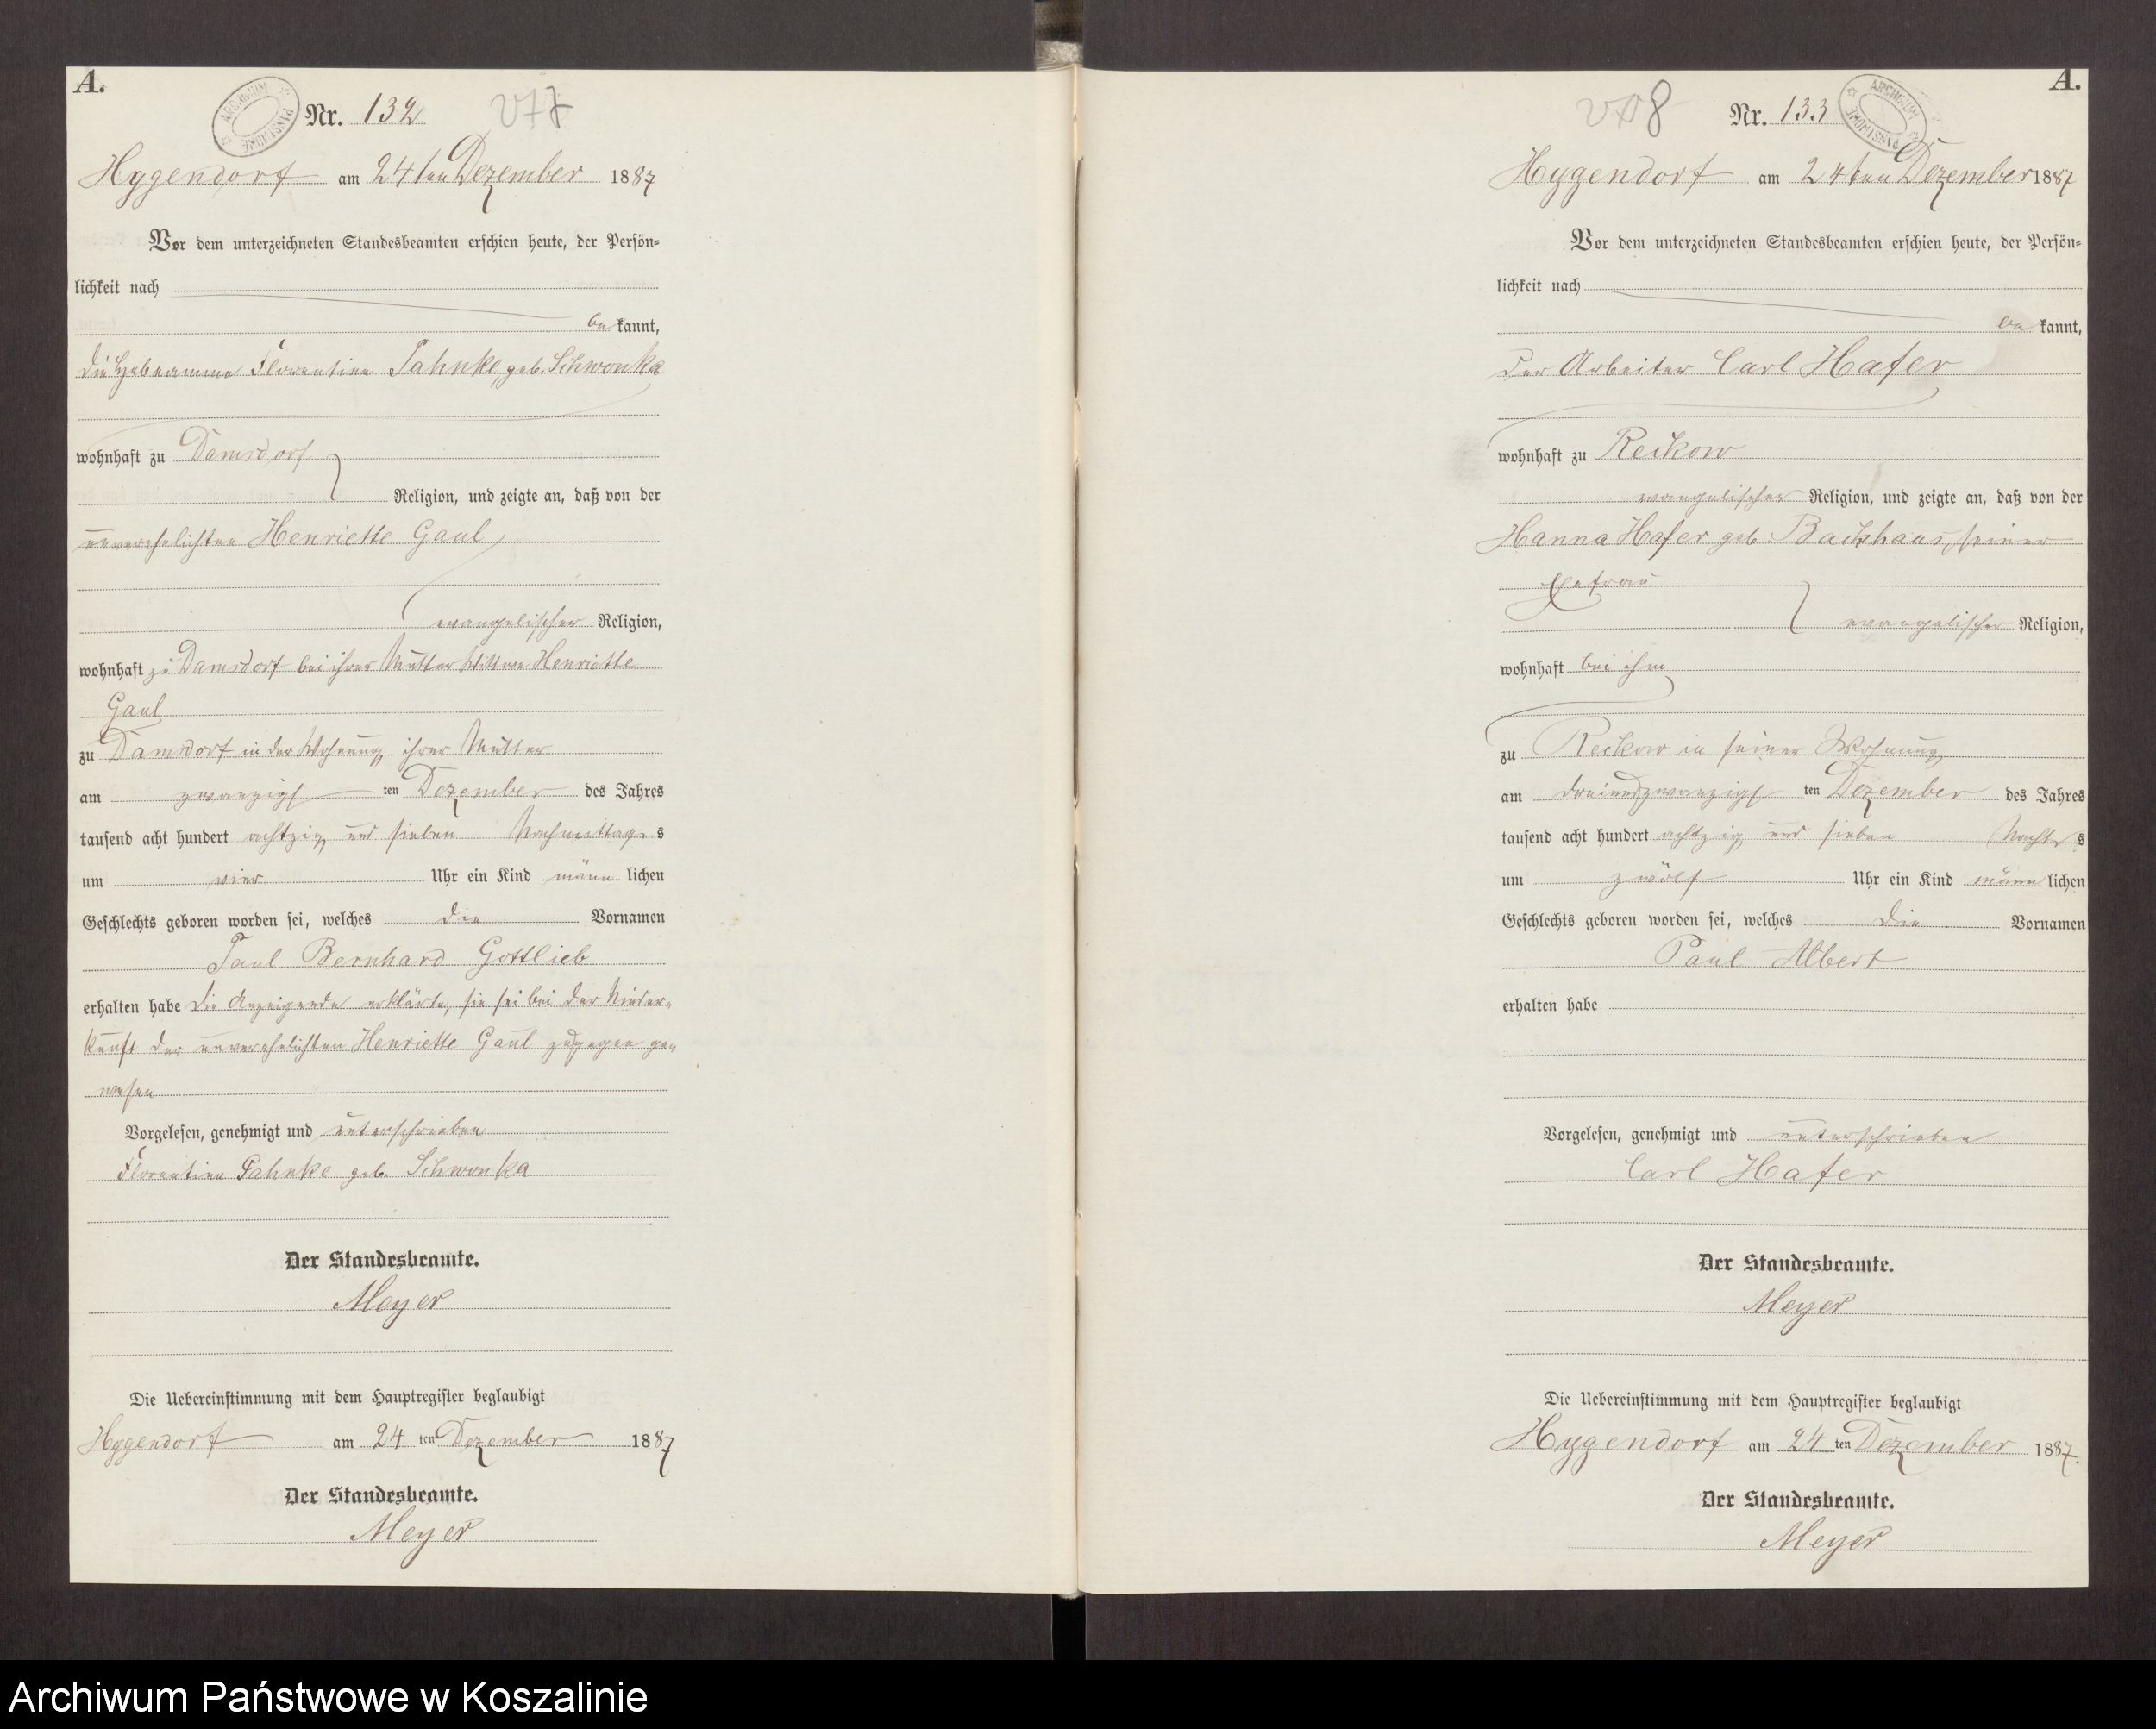 A.
ARCHIWUM PAŃSTWOWE
Nr. 132
Hygendorf am 24ten Dezember 1887
Vor dem unterzeichneten Standesbeamten erschien heute, der Persön-
lichkeit nach
be kannt,
die Hebeamme Florentine Pahnke geb. Schwonka
wohnhaft zu Damsdorf
Religion, und zeigte an, daß von der
unverehelichten Henriette Gaul
evangelischer Religion,
wohnhaft zu Damsdorf bei ihrer Mutter Wittwe Henriette
Gaul
zu Damsdorf in der Wohnung ihrer Mutter
am zwanzigsten Dezember des Jahres
tausend acht hundert achtzig und sieben Nachmittags
um vier Uhr ein Kind männlichen
Geschlechts geboren worden sei, welches die Vornamen
Paul Bernhard Gottlieb
erhalten habe Die Anzeigende erklärte, sie sei bei der Nieder-
kunft der unverehelichten Henriette Gaul zugegen ge-
wesen
Vorgelesen, genehmigt und unterschrieben
Florentine Pahnke geb. Schwonka
Der Standesbeamte.
Meyer
Die Uebereinstimmung mit dem Hauptregister beglaubigt
Hygendorf am 24 ten Dezember 1887
Der Standesbeamte.
Meyer
A.
Nr. 133
ARCHIWUM PAŃSTWOWE
Hygendorf am 24ten Dezember 1887
Vor dem unterzeichneten Standesbeamten erschien heute, der Persön-
lichkeit nach
be kannt,
der Arbeiter Carl Hafer
wohnhaft zu Reckow
evangelischer Religion, und zeigte an, daß von der
Hanna Hafer geb. Backhaus, seiner
Ehefrau
evangelischer Religion,
wohnhaft bei ihm
zu Reckow in seiner Wohnung
am dreiundzwanzigsten Dezember des Jahres
tausend acht hundert achtzig und sieben Nachts
um zwölf Uhr ein Kind männlichen
Geschlechts geboren worden sei, welches die Vornamen
Paul Albert
erhalten habe
Vorgelesen, genehmigt und unterschrieben
Carl Hafer
Der Standesbeamte.
Meyer
Die Uebereinstimmung mit dem Hauptregister beglaubigt
Hygendorf am 24 ten Dezember 1887.
Der Standesbeamte.
Meyer
Archiwum Państwowe w Koszalinie